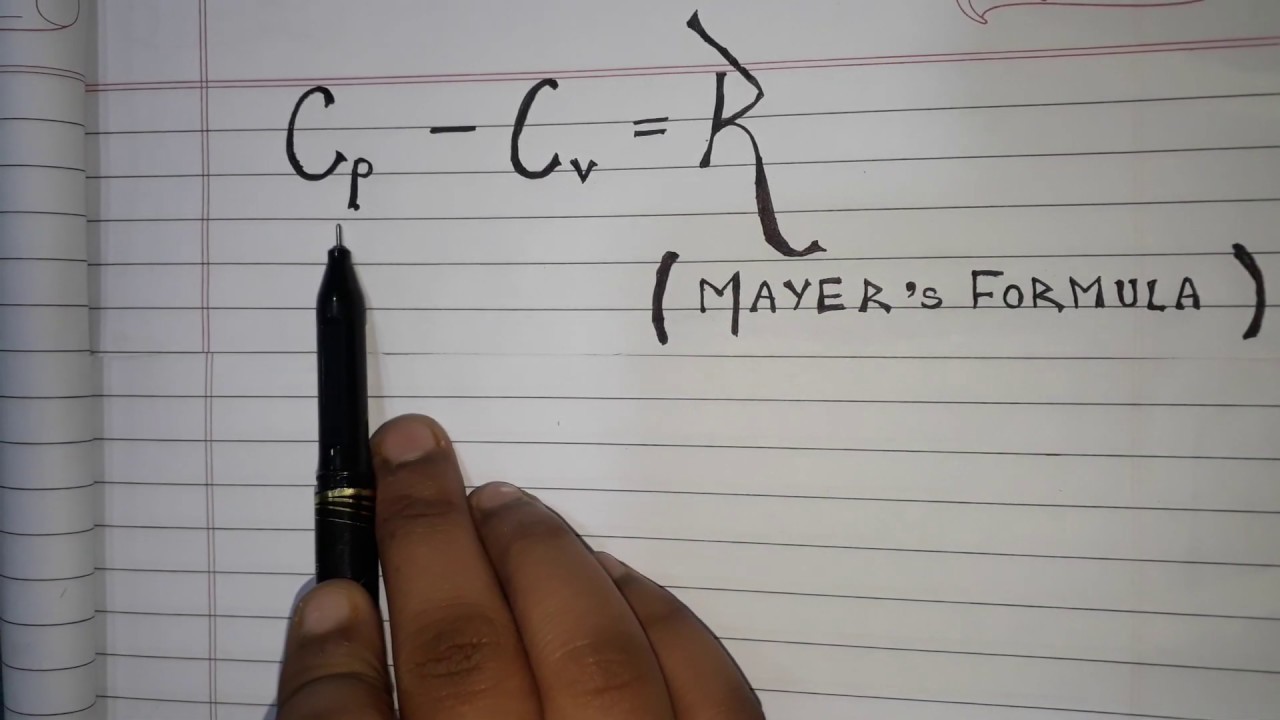 Cp - Cv = R
(MAYER's FORMULA)